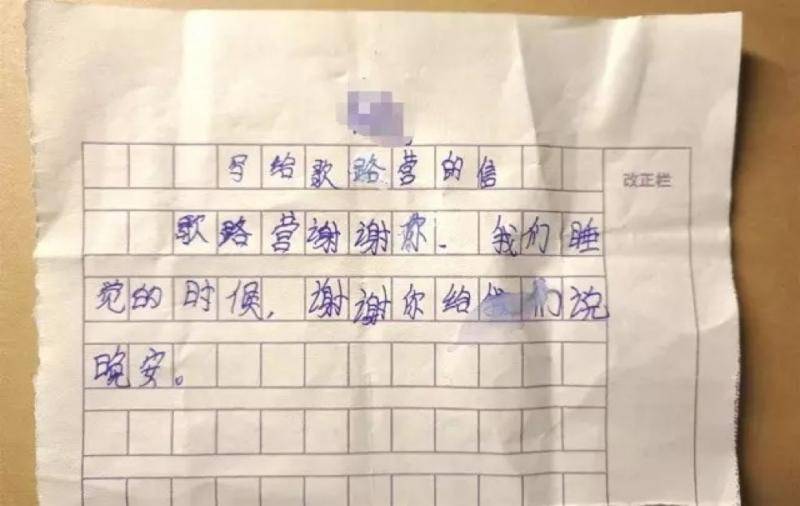 写给歌路营的信
改正栏
歌路营谢谢你. 我们睡
觉的时候, 谢谢你给我们说
晚安。